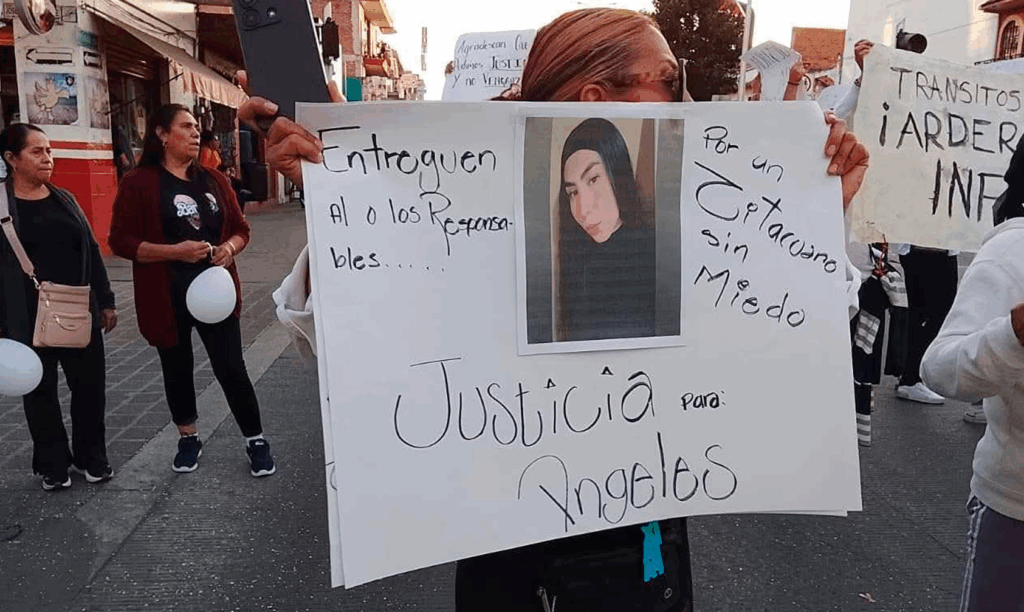 Agradezcan que
pedimos JUSTICIA
Y no VENGANZA
Entreguen
Al o los Responsa-
bles.....
Por un
Zitacuaro
sin
Miedo
Justicia para:
Angeles
TRANSITOS
¡ARDER
INF